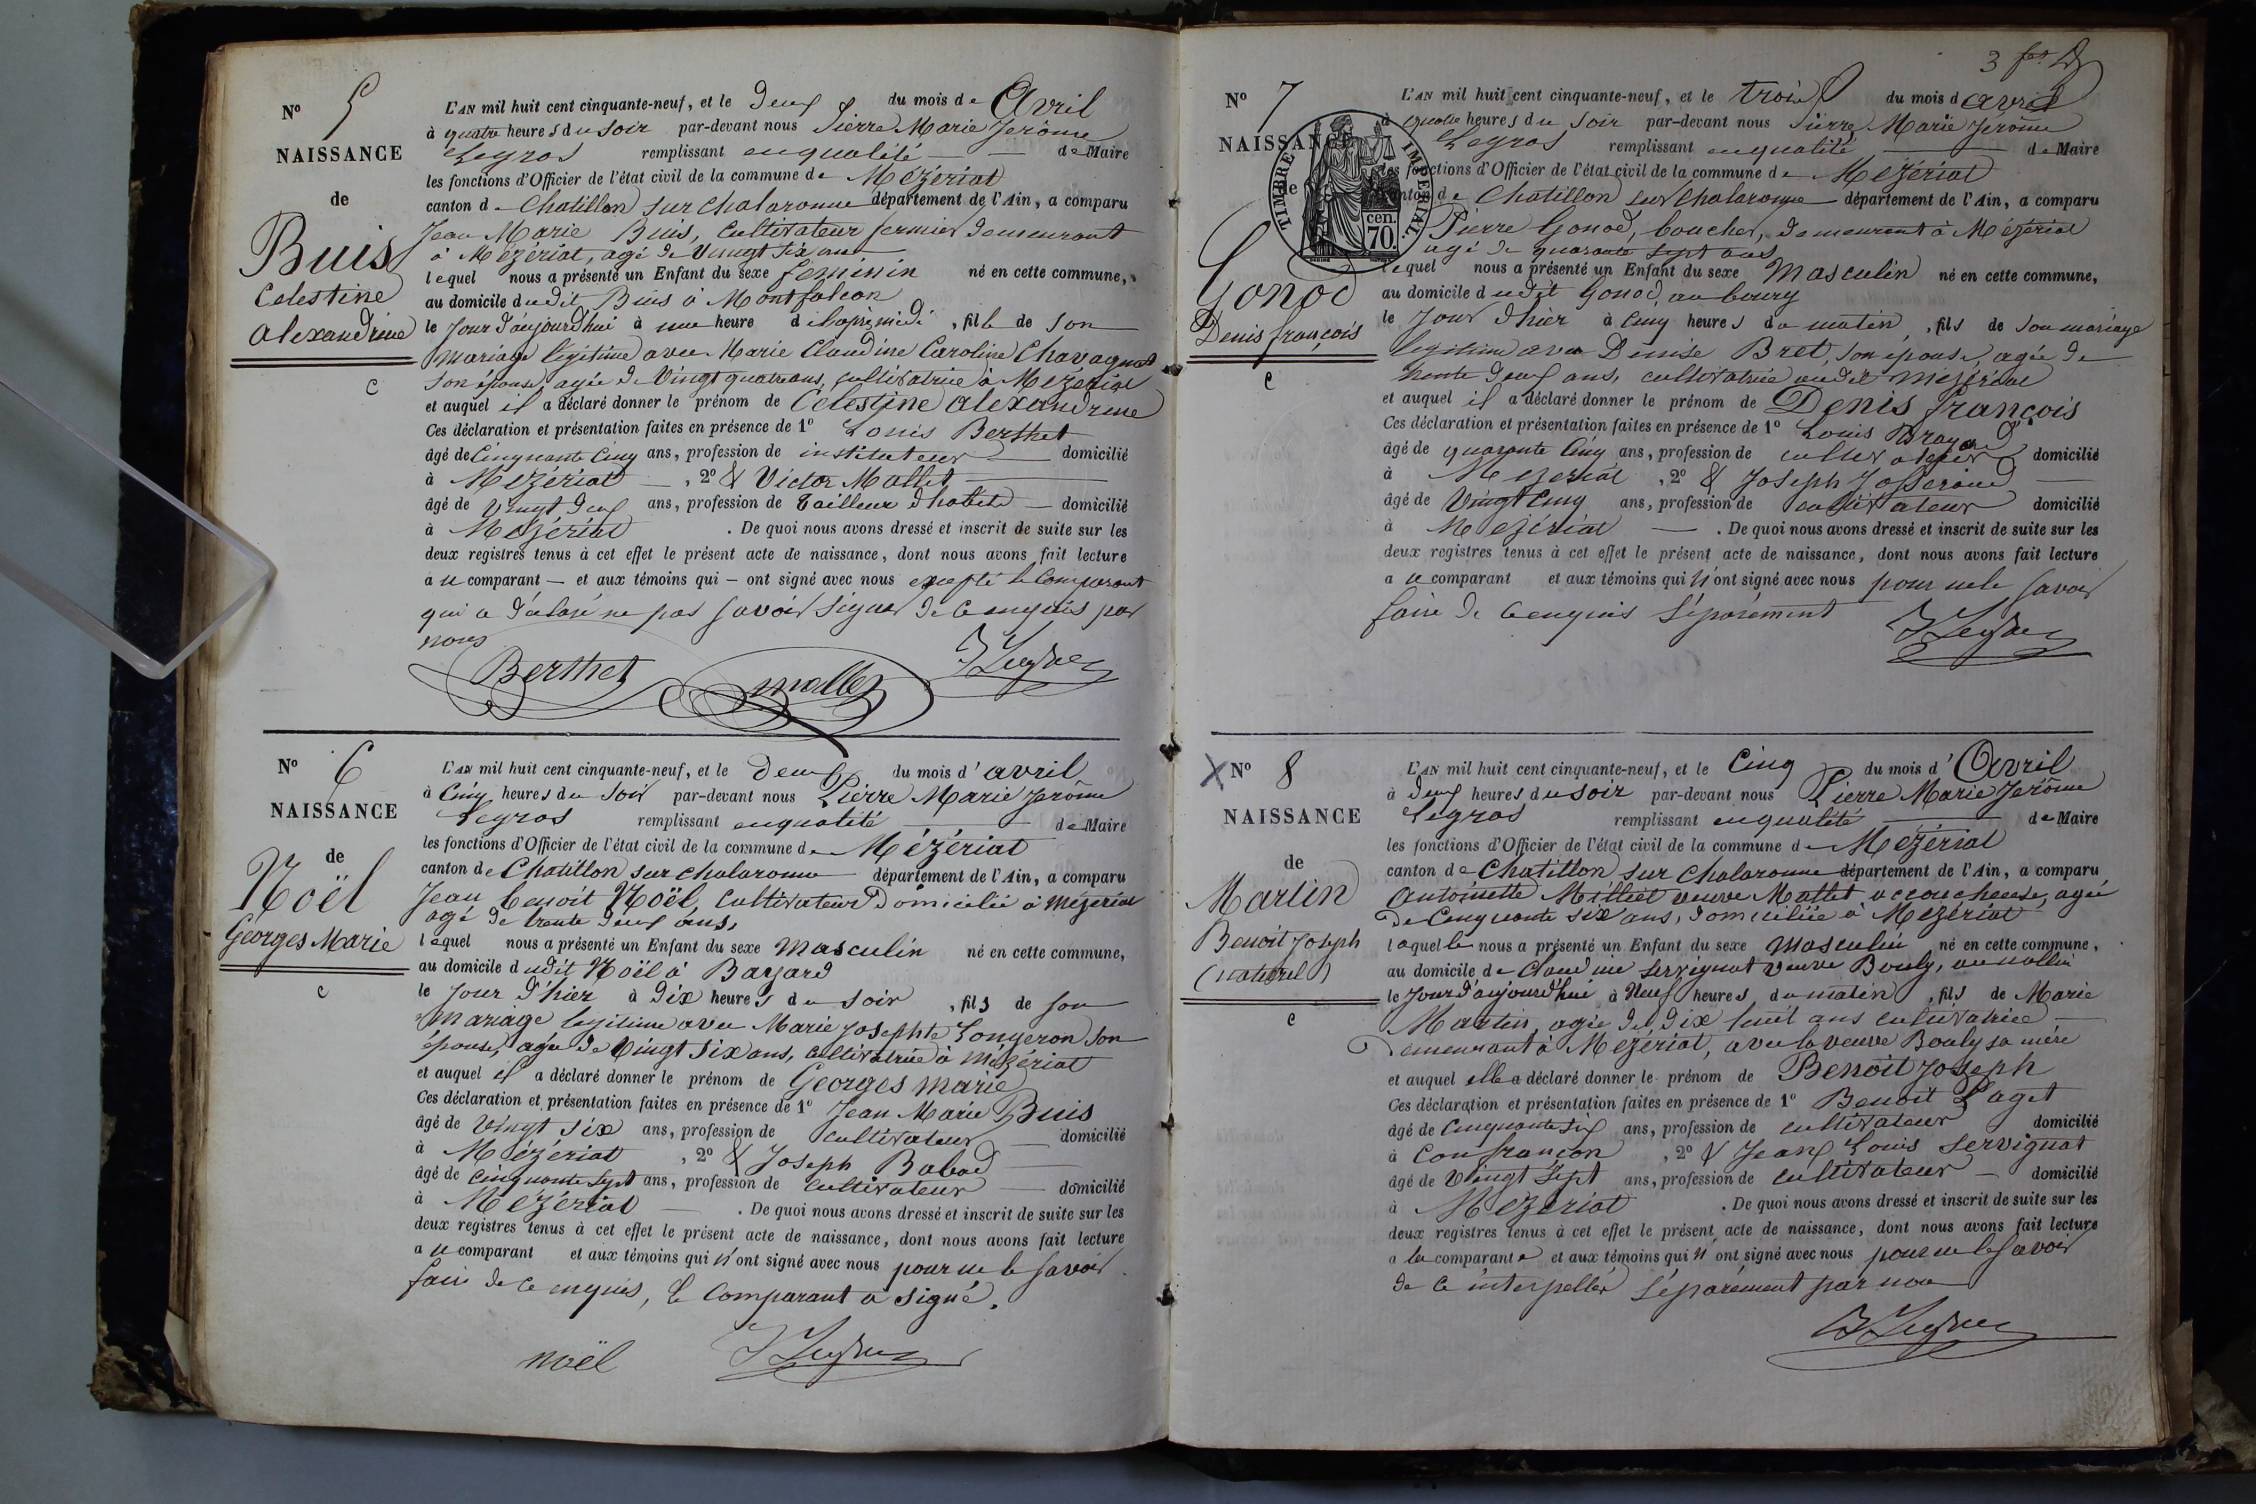 Nº 5
NAISSANCE
de
Buis
Celestine
alexandrine
c
L'AN mil huit cent cinquante-neuf, et le deux du mois de Avril
à quatre heures du soir par-devant nous Pierre Marie Jerôme
Legros remplissant en qualité de Maire
les fonctions d'Officier de l'état civil de la commune de Mézériat
canton de Chatillon sur chalaronne département de l'Ain, a comparu
Jean Marie Buis, cultivateur fermier demeurant
à Mézériat, agé de Vingt six ans
lequel nous a présenté un Enfant du sexe feminin né en cette commune,
au domicile dudit Buis à Montfalcon
le jour d'aujourd'hui à une heure de l'après midi, fille de son
mariage légitime avec Marie Claudine Caroline Chavagnat
son épouse agée de Vingt quatre ans, cultivatrice à Mézériat
et auquel il a déclaré donner le prénom de Celestine alexandrine
Ces déclaration et présentation faites en présence de 1º Louis Berthet
âgé de Cinquante Cinq ans, profession de instituteur domicilié
à Mézériat, 2º & Victor Mallet
âgé de Vingt deux ans, profession de Tailleur d'habits domicilié
à Mézériat. De quoi nous avons dressé et inscrit de suite sur les
deux registres tenus à cet effet le présent acte de naissance, dont nous avons fait lecture
au comparant et aux témoins qui ont signé avec nous excepté le Comparant
qui a déclaré ne pas savoir signer de ce enquis par
nous
Berthet mallet Legros
Nº 6
NAISSANCE
de
Noël
Georges Marie
c
L'AN mil huit cent cinquante-neuf, et le deux du mois d'avril
à Cinq heures du soir par-devant nous Pierre Marie Jerôme
Legros remplissant en qualité de Maire
les fonctions d'Officier de l'état civil de la commune de Mézériat
canton de Chatillon sur chalaronne département de l'Ain, a comparu
Jean benoit Noël, cultivateur domicilié à Mézériat
agé de trente deux ans,
lequel nous a présenté un Enfant du sexe masculin né en cette commune,
au domicile dudit Noël à Bayard
le jour d'hier à dix heures du soir, fils de son
mariage legitime avec Marie Josephte Longeron son
épouse, agée de Vingt six ans, cultivatrice à Mézériat
et auquel il a déclaré donner le prénom de Georges Marie
Ces déclaration et présentation faites en présence de 1º Jean Marie Buis
âgé de Vingt six ans, profession de cultivateur domicilié
à Mézériat, 2º & Joseph Babad
âgé de cinquante sept ans, profession de cultivateur domicilié
à Mézériat. De quoi nous avons dressé et inscrit de suite sur les
deux registres tenus à cet effet le présent acte de naissance, dont nous avons fait lecture
au comparant et aux témoins qui n'ont signé avec nous pour ne le savoir
faire de ce enquis, le Comparant a signé.
noël Legros
3 fet
Nº 7
NAISSANCE
de
Gonod
Denis françois
c
TIMBRE IMPERIAL.
cen.
70.
L'AN mil huit cent cinquante-neuf, et le trois du mois d'avril
à quatre heures du soir par-devant nous Pierre Marie Jerôme
Legros remplissant en qualité de Maire
les fonctions d'Officier de l'état civil de la commune de Mézériat
canton de Chatillon sur Chalaronne département de l'Ain, a comparu
Pierre Gonod, boucher, demeurant à Mézériat
agé de quarante sept ans
lequel nous a présenté un Enfant du sexe Masculin né en cette commune,
au domicile dudit Gonod, au bourg
le jour d'hier à Cinq heures du matin, fils de son mariage
legitime avec Denise Bret, son épouse, agée de
trente deux ans, cultivatrice audit Mézériat
et auquel il a déclaré donner le prénom de Denis françois
Ces déclaration et présentation faites en présence de 1º Louis Brayard
âgé de quarante Cinq ans, profession de cultivateur domicilié
à Mezeriat, 2º & Joseph Josserand
âgé de Vingt Cinq ans, profession de cultivateur domicilié
à Mézériat. De quoi nous avons dressé et inscrit de suite sur les
deux registres tenus à cet effet le présent acte de naissance, dont nous avons fait lecture
au comparant et aux témoins qui n'ont signé avec nous pour ne le savoir
faire de ce enquis séparément
Legros
X Nº 8
NAISSANCE
de
Martin
Benoit Joseph
(naturel)
c
L'AN mil huit cent cinquante-neuf, et le Cinq du mois d'Avril
à deux heures du soir par-devant nous Pierre Marie Jerôme
Legros remplissant en qualité de Maire
les fonctions d'Officier de l'état civil de la commune de Mézériat
canton de Chatillon sur Chalaronne département de l'Ain, a comparu
antoinette Milliet veuve Mallet accoucheuse, agée
de Cinquante six ans, domiciliée à Mézériat
laquelle nous a présenté un Enfant du sexe Masculin né en cette commune,
au domicile de Claudine Servignat veuve Bouly, au
le jour d'aujourd'hui à Neuf heures du matin, fils de Marie
Martin, agée de dix huit ans cultivatrice
demeurant à Mézériat, avec la veuve Bouly sa mère
et auquel elle a déclaré donner le prénom de Benoit Joseph
Ces déclaration et présentation faites en présence de 1º Benoit Paget
âgé de Cinquante six ans, profession de cultivateur domicilié
à Confrançon, 2º & Jean Louis Servignat
âgé de Vingt Sept ans, profession de cultivateur domicilié
à Mézériat. De quoi nous avons dressé et inscrit de suite sur les
deux registres tenus à cet effet le présent acte de naissance, dont nous avons fait lecture
a la comparante et aux témoins qui n'ont signé avec nous pour ne le savoir
de ce interpellés séparément par nou
Legros